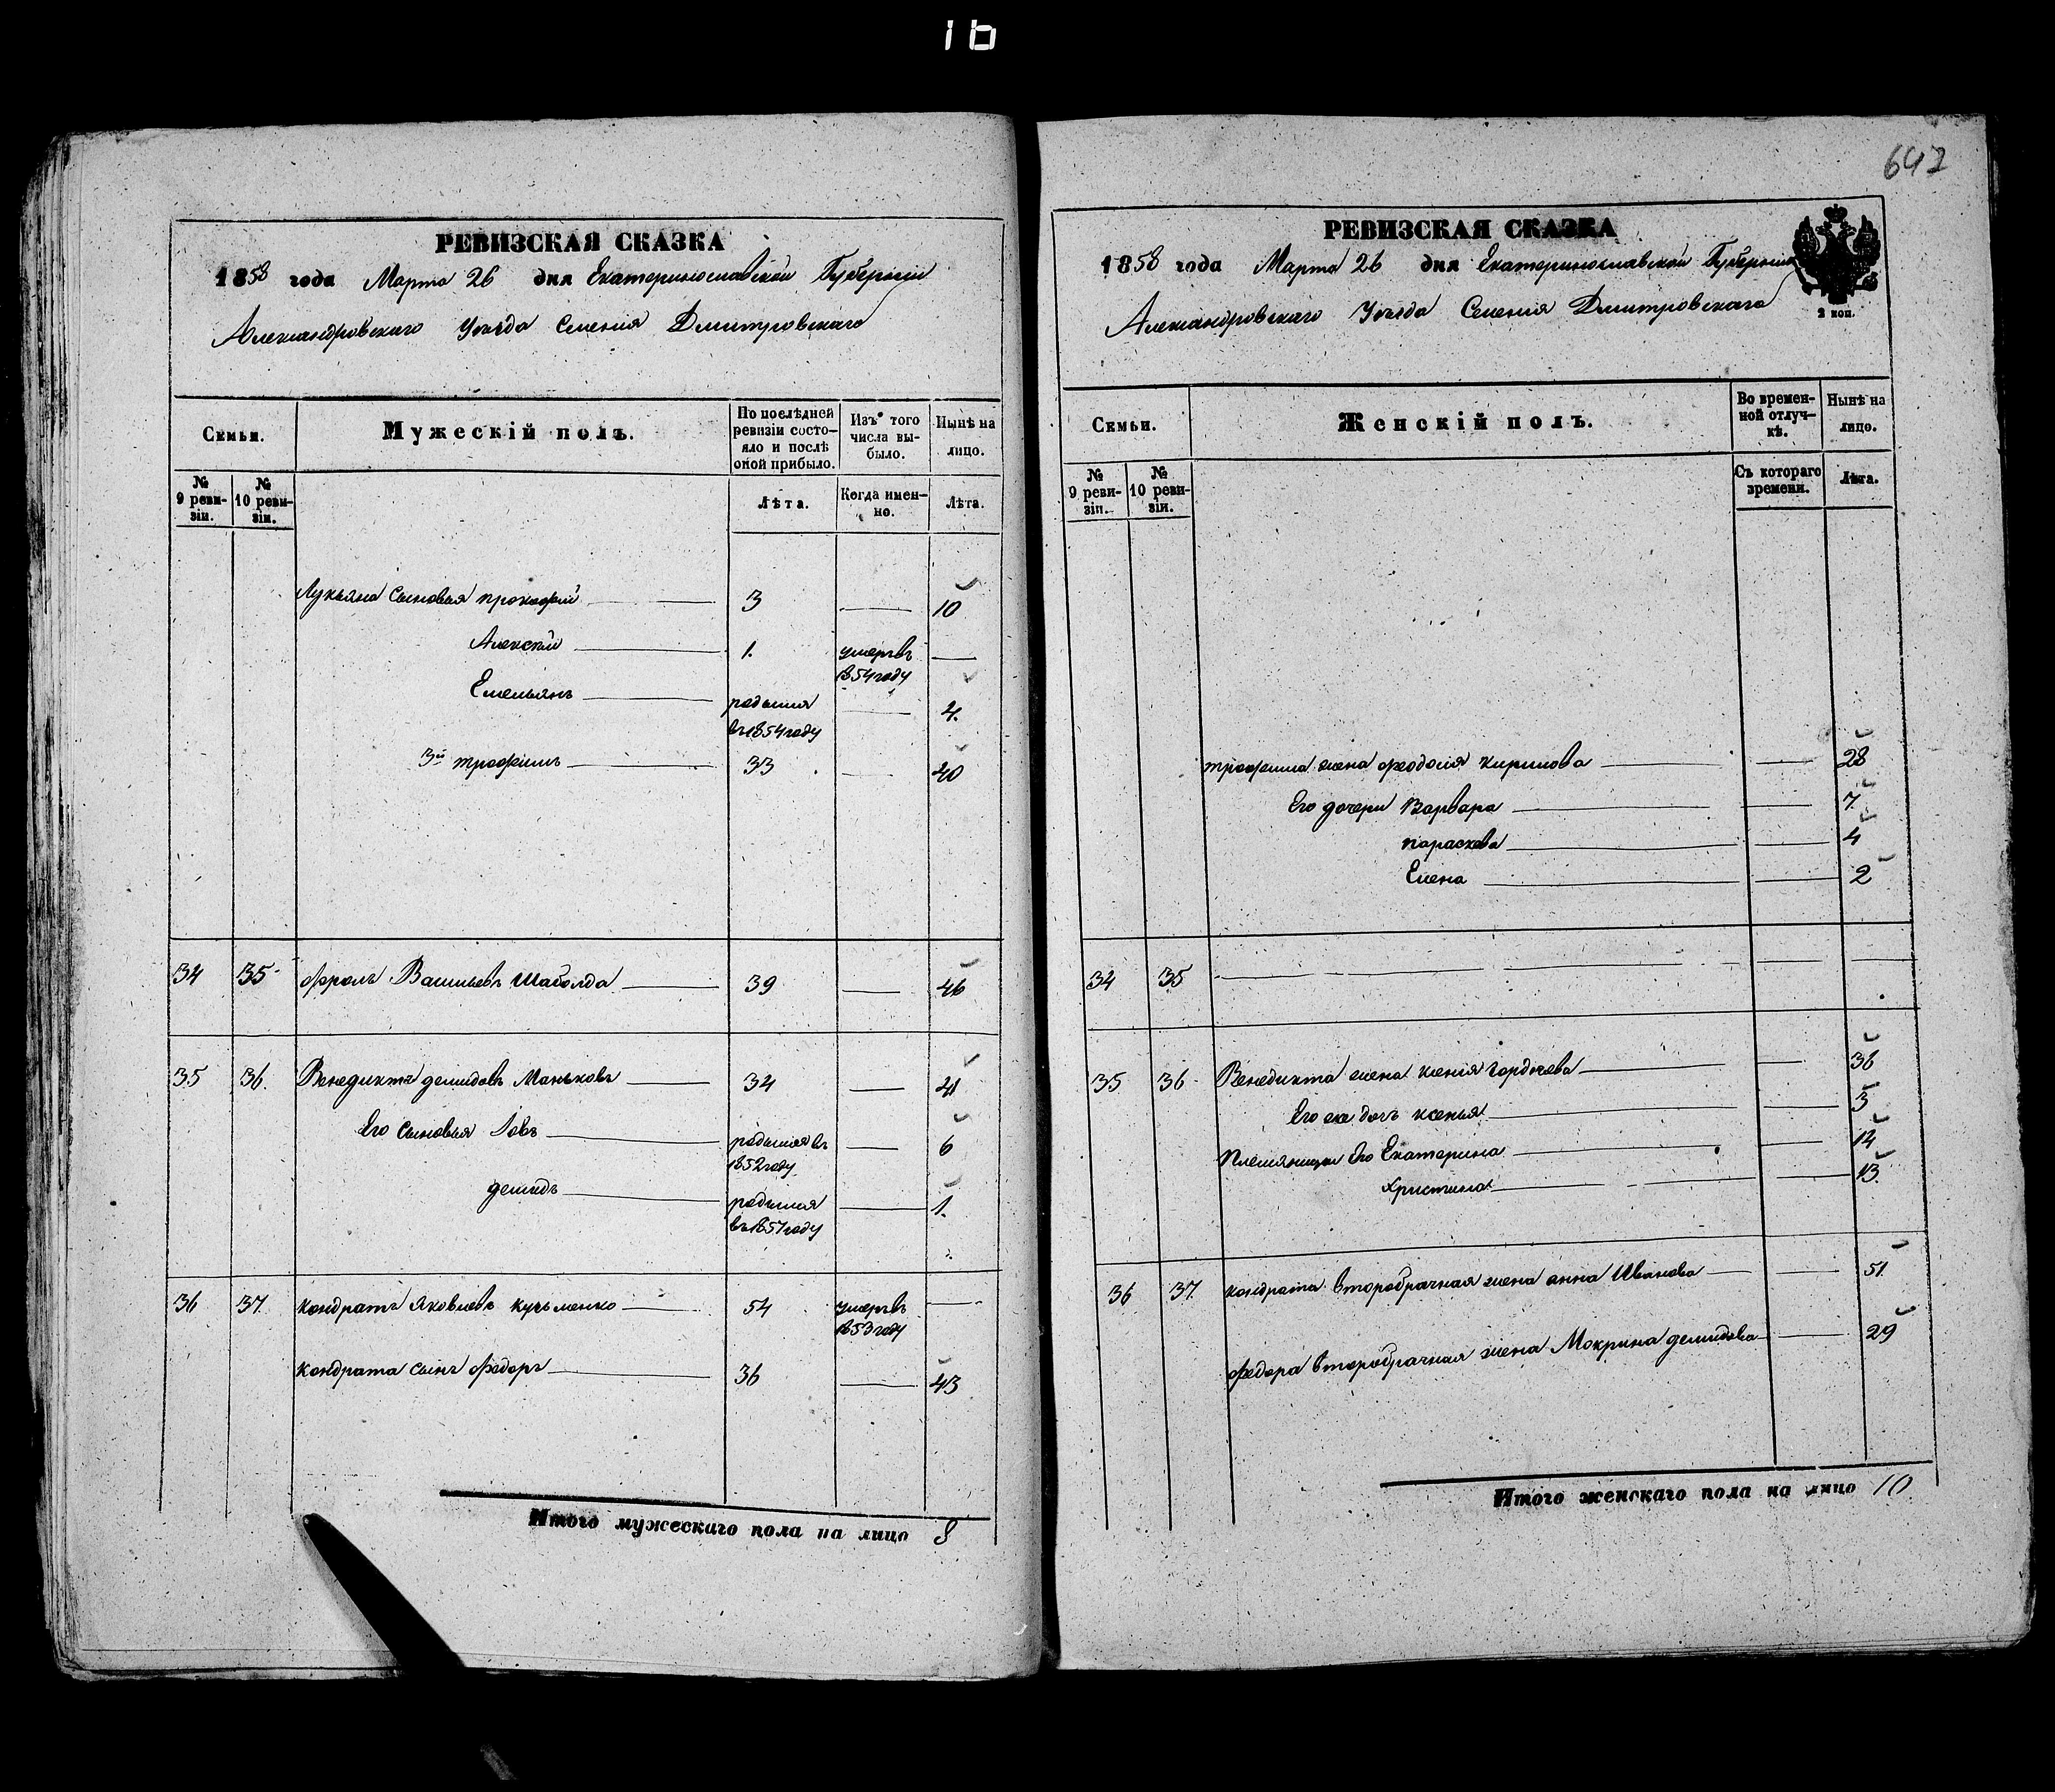 16
647
РЕВИЗСКАЯ СКАЗКА
1858 года Марта 26 дня Екатеринославской Губернии
Александровского Уезда Селения Дмитровскаго
Семьи.
Мужескій полъ.
По послѣдней ревизіи состо-
яло и послѣ оной прибыло.
Изъ того числа вы-
было.
Нынѣ на лицо.
№ 9 реви-
зіи.
№ 10 реви-
зіи.
Лѣта.
Когда имен-
но.
Лѣта.
Лукьяна сыновья прокофий 3 10
Алексѣй 1. умеръ въ 1854 году
Емельянъ родился въ 1854 году 4.
3й трофимъ 33 40
34 35 фролъ Васильевъ 39 46
35 36. Венедиктъ демидовъ Маньковъ 34 41
Его сыновья Іовъ родился въ 1852 году 6
демидъ родился въ 1857 году 1.
36 37. кондратъ яковлевъ кузьменко 54 умеръ въ 1853 году
кондрата сынъ федоръ 36 43
Итого мужескаго пола на лицо 8
РЕВИЗСКАЯ СКАЗКА
2 коп.
1858 года Марта 26 дня Екатеринославской Губернии
Александровского Уезда Селения Дмитровскаго
Семьи.
Женскій полъ.
Во времен-
ной отлуч-
кѣ.
Нынѣ на лицо.
№ 9 реви-
зіи.
№ 10 реви-
зіи.
Съ котораго времени.
Лѣта.
трофима жена феодосія кирилова 28
Его дочери Варвара 7.
параскева 4
Елена 2
34 35
35 36 Венедикта жена ксенія гордѣева 36
Его же дочь ксенья 3
Племянницы Его Екатерина 14
христина 13.
36 37. кондрата второбрачная жена анна Иванова 51.
федора второбрачная жена Мокрина демидова 29
Итого женскаго пола на лицо 10